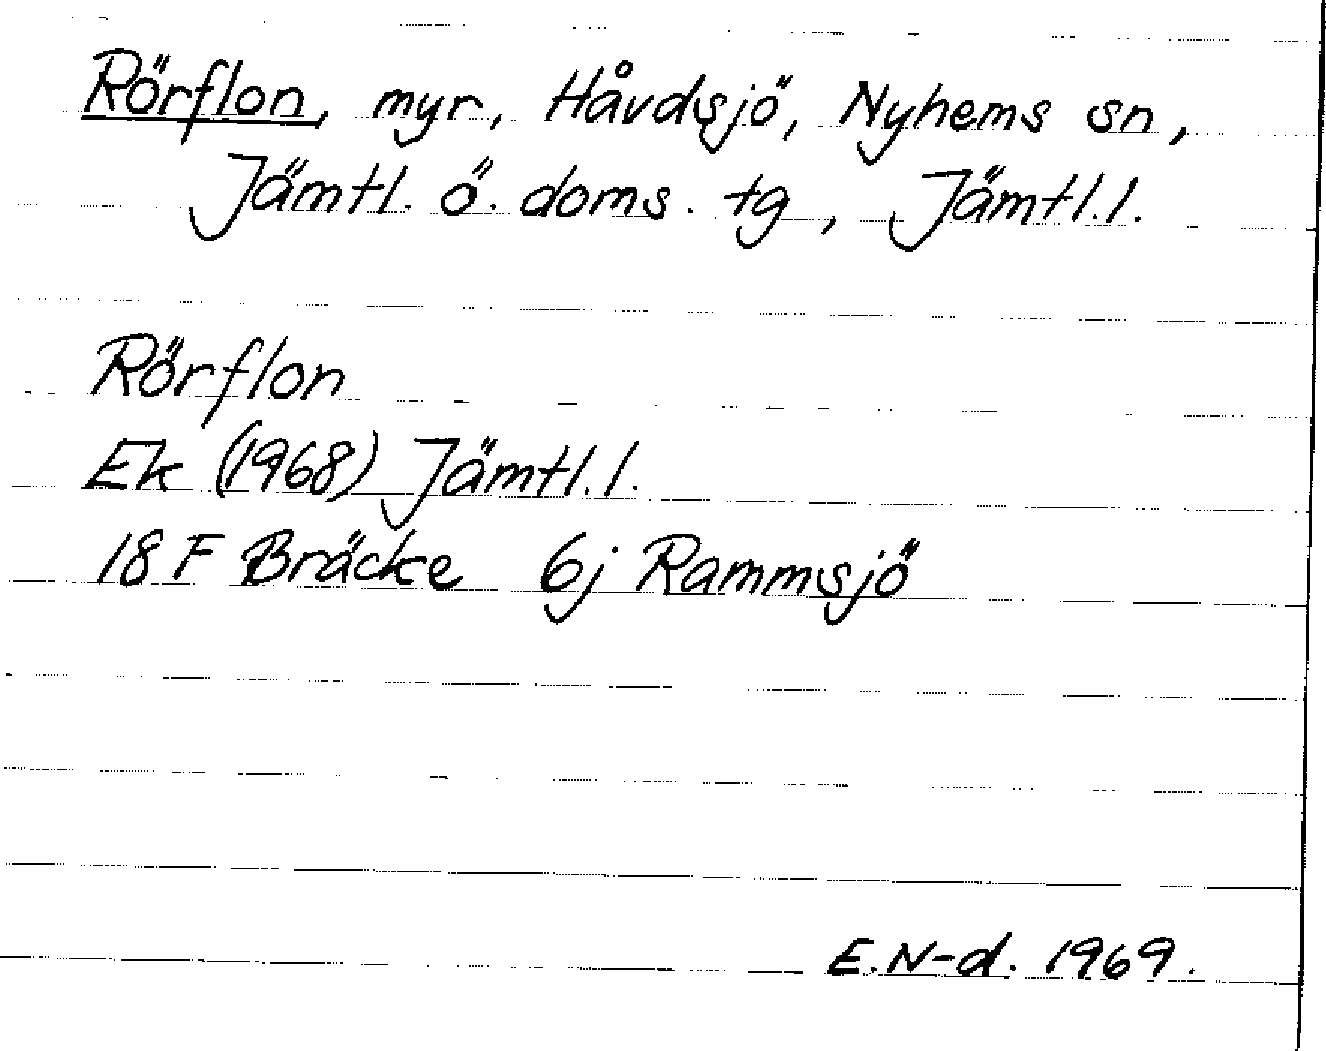 Rörflon, myr, Håvdsjö, Nyhems sn,
Jämtl. ö. doms. tg, Jämtl.l.
Rörflon
Ek (1968) Jämtl.l.
18 F Bräcke 6j Rammsjö
E.N-d. 1969.